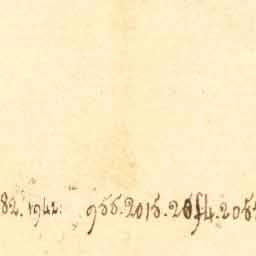 82. 1942. 955. 2015. 2054. 205